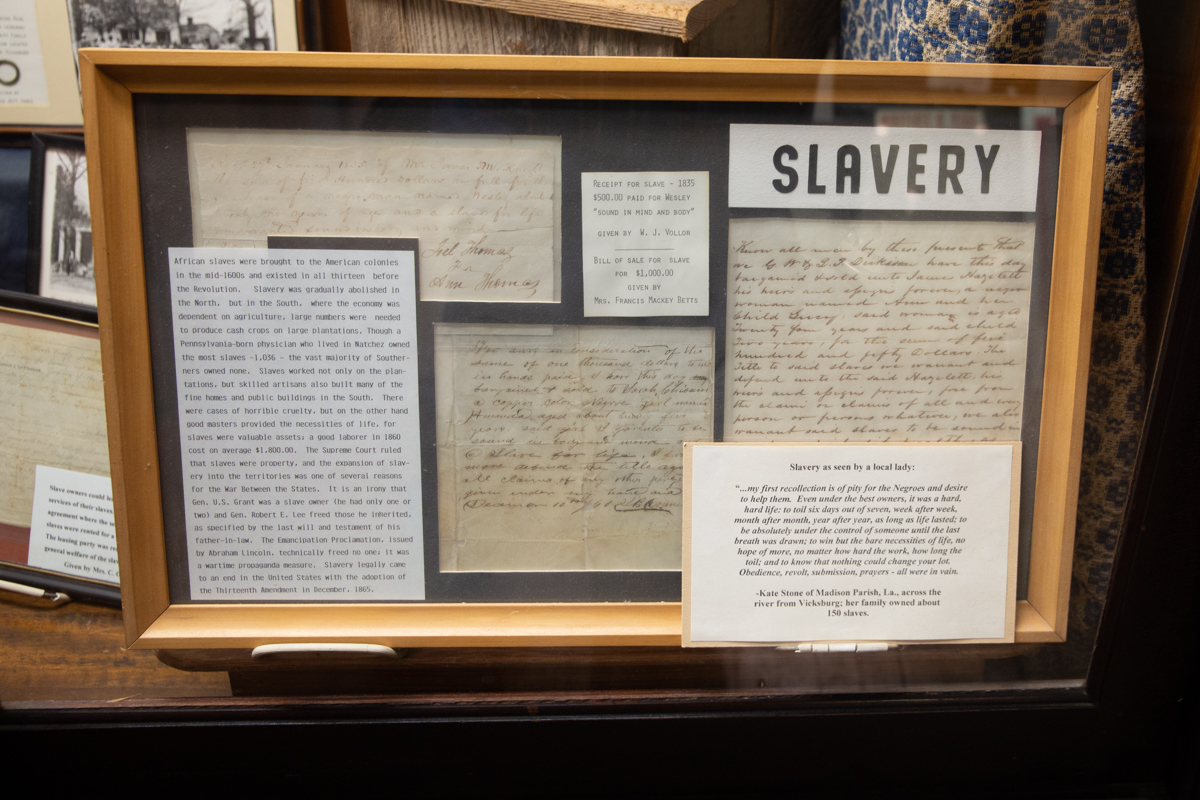 SLAVERY
RECEIPT FOR SLAVE - 1835
$500.00 PAID FOR WESLEY
"SOUND IN MIND AND BODY"
GIVEN BY W. J. VOLLOR
BILL OF SALE FOR SLAVE
FOR $1,000.00
GIVEN BY
MRS. FRANCIS MACKEY BETTS
Joel Thomas
for
Ann Thomas
African slaves were brought to the American colonies
in the mid-1600s and existed in all thirteen before
the Revolution. Slavery was gradually abolished in
the North, but in the South, where the economy was
dependent on agriculture, large numbers were needed
to produce cash crops on large plantations. Though a
Pennsylvania-born physician who lived in Natchez owned
the most slaves -1,036 - the vast majority of Souther-
ners owned none. Slaves worked not only on the plan-
tations, but skilled artisans also built many of the
fine homes and public buildings in the South. There
were cases of horrible cruelty, but on the other hand
good masters provided the necessities of life, for
slaves were valuable assets; a good laborer in 1860
cost on average $1,800.00. The Supreme Court ruled
that slaves were property, and the expansion of slav-
ery into the territories was one of several reasons
for the War Between the States. It is an irony that
Gen. U.S. Grant was a slave owner (he had only one or
two) and Gen. Robert E. Lee freed those he inherited,
as specified by the last will and testament of his
father-in-law. The Emancipation Proclamation, issued
by Abraham Lincoln, technically freed no one; it was
a wartime propaganda measure. Slavery legally came
to an end in the United States with the adoption of
the Thirteenth Amendment in December, 1865.
in consideration of the
sum of one thousand dollars to me
in hand paid, I have this day
bargained & sold to Sarah Chisam
a copper color Negro girl named
aged about
years, said girl I warrant to be
sound
a Slave for life, I
the title
all claims of any other
given under my hand and
Know all men by these presents that
we G W & L. F. Dickson have this day
bargained & sold unto James Hazelett
his heirs and assigns forever, a negro
woman named Ann and her
Child Lucy; said woman is aged
Twenty four years and said child
Two years, for the sum of five
hundred and fifty Dollars. The
Title to said slaves we warrant and
defend unto the said Hazelett, his
heirs and assigns forever, free from
the claim or claims of all and every
person or persons whatever, we also
warrant said slaves to be sound in
Slavery as seen by a local lady:
"...my first recollection is of pity for the Negroes and desire
to help them. Even under the best owners, it was a hard,
hard life: to toil six days out of seven, week after week,
month after month, year after year, as long as life lasted; to
be absolutely under the control of someone until the last
breath was drawn; to win but the bare necessities of life, no
hope of more, no matter how hard the work, how long the
toil; and to know that nothing could change your lot.
Obedience, revolt, submission, prayers - all were in vain.
-Kate Stone of Madison Parish, La., across the
river from Vicksburg; her family owned about
150 slaves.
Slave owners could
services of their slaves
agreement where the
slaves were rented for a
The leasing party was
general welfare of the
Given by Mrs. C.